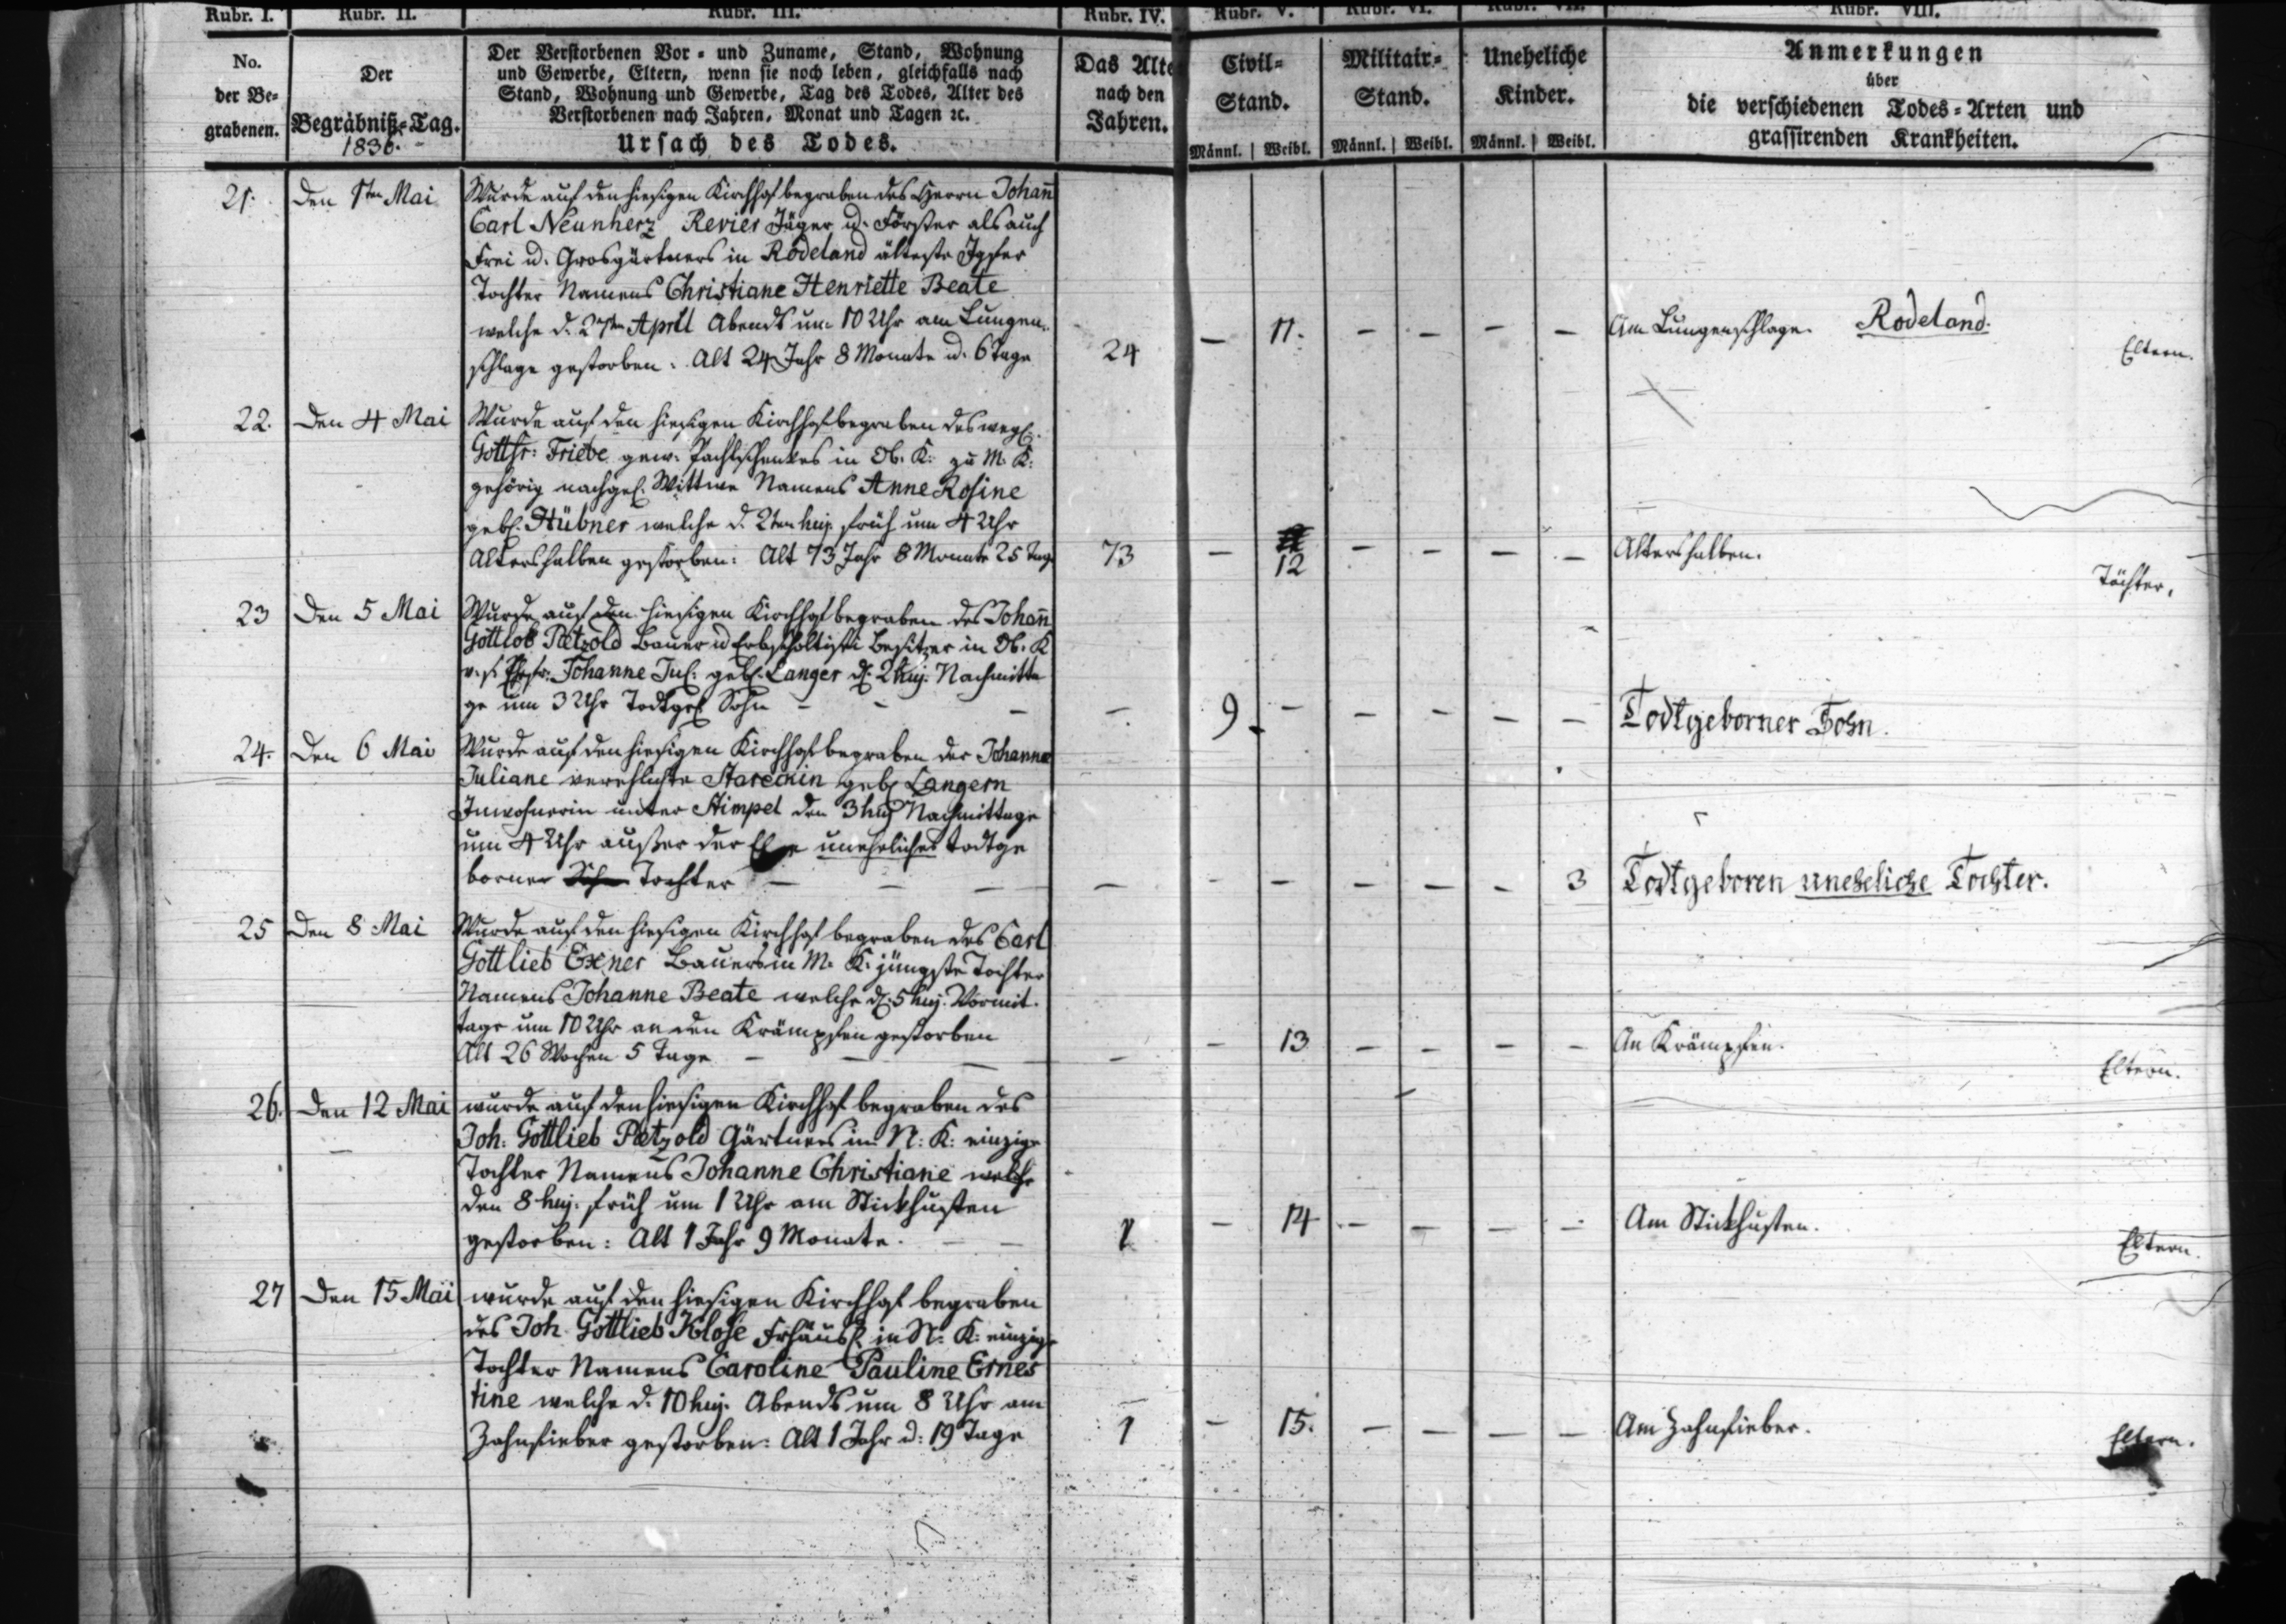 Rubr. I. Rubr. II. Rubr. III. Rubr. IV. Rubr. V. Rubr. VI. Rubr. VII. Rubr. VIII.
No.
der Be=
grabenen.
Der
Begräbniß=Tag.
1836.
Der Verstorbenen Vor= und Zuname, Stand, Wohnung
und Gewerbe, Eltern, wenn sie noch leben, gleichfalls nach
Stand, Wohnung und Gewerbe, Tag des Todes, Alter des
Verstorbenen nach Jahren, Monat und Tagen ꝛc.
Ursach des Todes.
Das Alte
nach den
Jahren.
Civil=
Stand.
Männl. Weibl.
Militair=
Stand.
Männl. Weibl.
Uneheliche
Kinder.
Männl. Weibl.
Anmerkungen
über
die verschiedenen Todes=Arten und
grassirenden Krankheiten.
21. Den 1ten Mai Wurde auf den hiesigen Kirchhof begraben des Herrn Johañ
Carl Neunherz Revier Jäger u. Förster als auch
Frei u. Grosgärtners in Rodeland älteste Jgfer
Tochter Namens Christiane Henriette Beate
welche d. 27ten April Abends um 10 Uhr am Lungen-
schlage gestorben: Alt 24 Jahr 8 Monate u. 6 Tage 24 — 11. — — — — Am Lungenschlage. Rodeland. Eltern.
22. Den 4 Mai Wurde auf den hiesigen Kirchhof begraben des weyl.
Gottfr: Friebe gew: Pachtschenkes in Ob. K: zu M. K:
gehörig nachgel. Wittwe Namens Anne Rosine
geb. Hübner welche d. 2ten huj. früh um 4 Uhr
Altershalben gestorben: Alt 73 Jahr 8 Monate 25 Tag 73 — 12 — — — — Altershalben. Töchter.
23 Den 5 Mai Wurde auf den hiesigen Kirchhof begraben des Johañ
Gottlob Pätzold Bauer u Erbscholtisei Besitzer in Ob. K
v. s. Johanne Jul: geb. Langer d. 2 huj. Nachmitta
ge um 3 Uhr Todtgeb Sohn — — — — 9. — — — — — Todtgeborner Sohn.
24. Den 6 Mai Wurde auf den hiesigen Kirchhof begraben der Johanne
Juliane verehlichte geb Langern
Inwohnerin unter Stimpel den 3 huj Nachmittage
um 4 Uhr außer der Ehe uneheliches todtge
borner Sohn Tochter — — — — — — — — — 3 Todtgeboren uneheliche Tochter.
25 Den 8 Mai Wurde auf den hiesigen Kirchhof begraben des Carl
Gottlieb Exner Bauers in M. K. jüngste Tochter
Namens Johanne Beate welche d. 5 huj. Vormit.
tags um 10 Uhr an den Krämpfen gestorben
Alt 26 Wochen 5 Tage — — — — — 13 — — — — An Krämpfen. Eltern.
26. Den 12 Mai wurde auf den hiesigen Kirchhof begraben des
Joh: Gottlieb Pätzold Gärtners in N: K: einzige
Tochter Namens Johanne Christiane welche
den 8 huj. früh um 1 Uhr am Stickhusten
gestorben: Alt 1 Jahr 9 Monate. — — 1 — 14 — — — — Am Stickhusten. Eltern.
27 Den 15 Mai wurde auf den hiesigen Kirchhof begraben
des Joh. Gottlieb Klose Frhäusl. in N: K: einzige
Tochter Namens Caroline Pauline Ernes
tine welche d. 10 huj. Abends um 8 Uhr am
Zahnfieber gestorben: Alt 1 Jahr u: 19 Tage 1 — 15. — — — — Am Zahnfieber. Eltern.